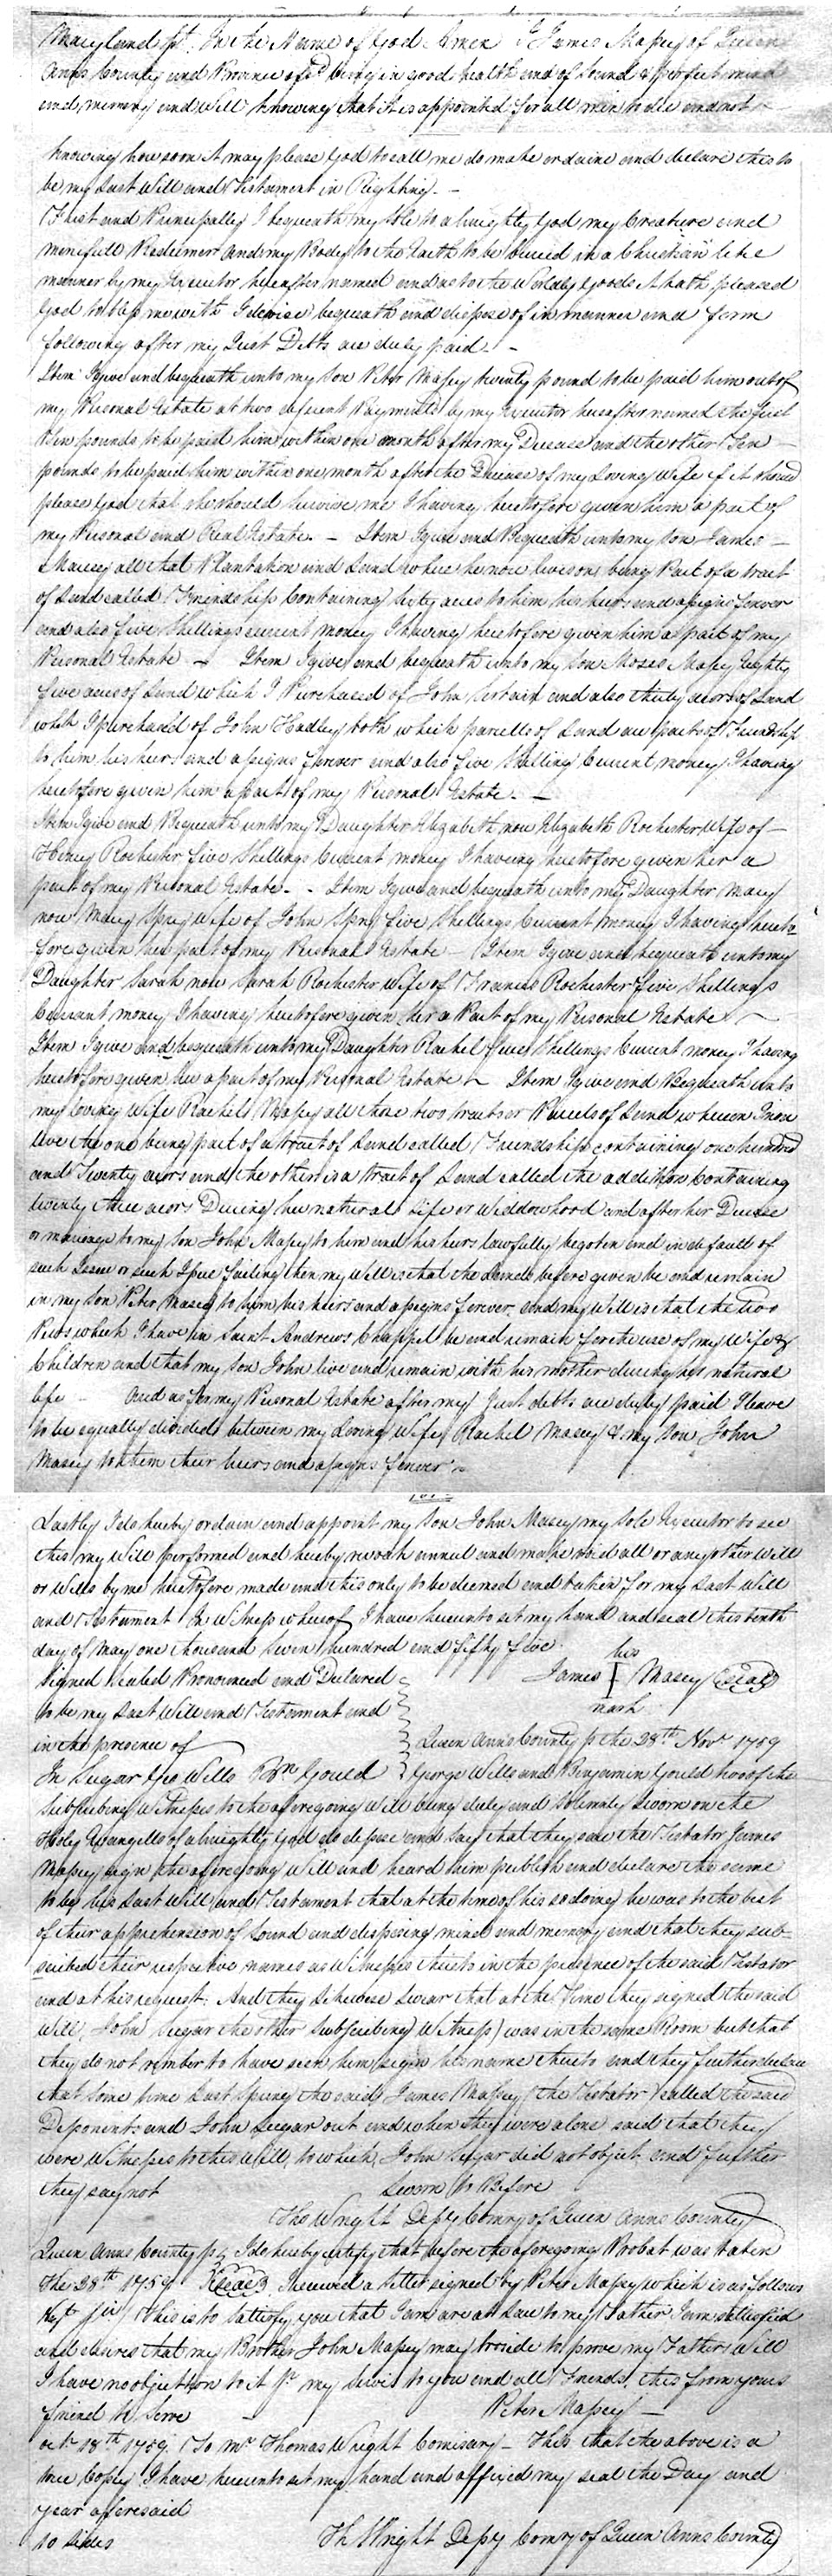 Maryland st. In the Name of God Amen I James Massey of Queen
Anns County and Provnce afsd. being in good health and of Sound & perfect mind
and memory and Will knowing that it is appointed for all men to die and not
knowing how soon it may please God to call me do make ordaine and declare this to
be my Last Will and Testament in Righting. -
First and Principally I bequeath my Sole to almighty God my Creature and
mercifull Redeemer and my Body to the Earth to be buried in a Christian like
manner by my Executor hereafter named and as to the Worldly goods it hath pleased
God to bless me with I devise bequeath and dispose of in manner and form
following after my Just Debts are duly paid. -
Item I give and bequeath unto my son Peter Massey twenty pound to be paid him out of
my Personal Estate at two different Payments by my Executor hereafter named the first
Ten pounds to be paid him within one month after my Decease and the other Ten
pounds to be paid him within one month after the Decease of my Loving Wife if it should
please God that she should survive me I having heretofore given him a part of
my Personal and Real Estate. - Item I give and Bequeath unto my son James -
Massey all that Plantation and Land where he now lives on being Part of a tract
of Land called Friendship Containing sixty acres to him his heirs and assigns forever
and also five Shillings current money I having heretofore given him a part of my
Personal Estate - Item I give and bequeath unto my son Moses Massey Eighty
five acres of Land which I Purchased of John and also thirty acors of Land
which I purchased of John Hadley both which parcells of Land are parts of Friendship
to him his heirs and assigns forever and also five Shilling Current money I having
heretofore given him a part of my Personal Estate. -
Item I give and Bequeath unto my Daughter Elizabeth now Elizabeth Rochester Wife of -
Henery Rochester five Shellings Current money I having heretofore given her a
part of my Personal Estate. - Item I give and bequeath unto my Daughter Mary
now Mary Spry Wife of John Spry five Shellings Current Money I having hereto=
fore given her part of my Personal Estate - Item I give and bequeath unto my
Daughter Sarah now Sarah Rochester Wife of Francis Rochester five Shellings
Currant money I having heretofore given her a Part of my Personal Estate -
Item I give and bequeath unto my Daughter Rachel five Shellings Current money I having
heretofore given her a part of my Personal Estate - Item I give and Bequeath unto
my loving Wife Rachel Massey all those two tracts or Parcels of Land wherein I now
live the one being part of a tract of Land called Friendship containing one hundred
and Twenty acors and the other is a tract of Land called the addition Containing
twenty three acors During her natural Life or Widdowhood and after her Decease
or marriage to my son John Massey to him and his heirs lawfully begoten and in default of
such Issue or such Issue failing then my Will is that the Lands before given be and remain
in my son Peter Massey to him his heirs and assigns forever, and my Will is that the two
Pews which I have in Saint Andrews Chappel be and remain for the use of my Wife &
Children and that my son John live and remain with his mother during her natural
life - And as for my Personal Estate after my Just debts are duly paid I leave
to be equally divided between my Loving Wife Rachel Massey & my son John
Massey to them their heirs and assigns forever
Lastly I do hereby ordain and appoint my son John Massey my sole Executor to see
this my Will performed and hereby revoak annul and make void all or any other Will
or Wills by me heretofore made and this only to be deemed and taken for my Last Will
and Testament In Witness whereof I have hereunto set my hand and seal this tenth
day of May one thousand seven hundred and fifty five.
his
Signed sealed Pronounced and Declared James Massey (Seal)
to be my Last Will and Testament and mark
in the presence of Queen Anns County ss the 28th Novr 1759
Jn Seegar Geo Wills Bn Gould George Wills and Benjamin Gould two of the
Subscribing Witnesses to the aforegoing Will being duly and Solemnly Sworn on the
Holy Evangells of almighty God do depose and say that they saw the Testator James
Massey sign the aforegoing Will and heard him publish and declare the same
to be his Last Will and Testament that at the time of his so doing he was to the best
of their apprehension of Sound and disposing mind and memory and that they sub=
scribed their respective names as Witnesses thereto in the presence of the said Testator
and at his request: And they likewise swear that at the Time they signed the said
Will, John Seegar the other Subscribing Witness) was in the same Room but that
they do not rember to have seen him sign his name thereto and they further declare
that some time Last Spring the said James Massey (the Testator) called the said
Deponents and John Seegar out and when they were alone said that they
were Witnesses to this Will, to which John Seegar did not object and further
they say not Sworn to Before
Tho Wright Depy Comry of Queen Anns County
Queen Anns County ss I do hereby certify that before the aforegoing Probat was taken
the 28th 1759 (Seal) I received a letter signed by Peter Massey which is as follows
Sir This is to satisfy you that I am are at Law to my Father I am sattisfied
and desires that my Brother John Massey may proside to prove my Fathers Will
I have no objection to it Sr my Servis to you and all Friends, this from yours
friend to Serve - Peter Massey -
octr 18th 1759. To Mr Thomas Wright Comisary - That the above is a
true Copey I have hereunto set my hand and affixed my seal the Day and
year aforesaid
10 sides Th Wright Depy Comry of Queen Anns County